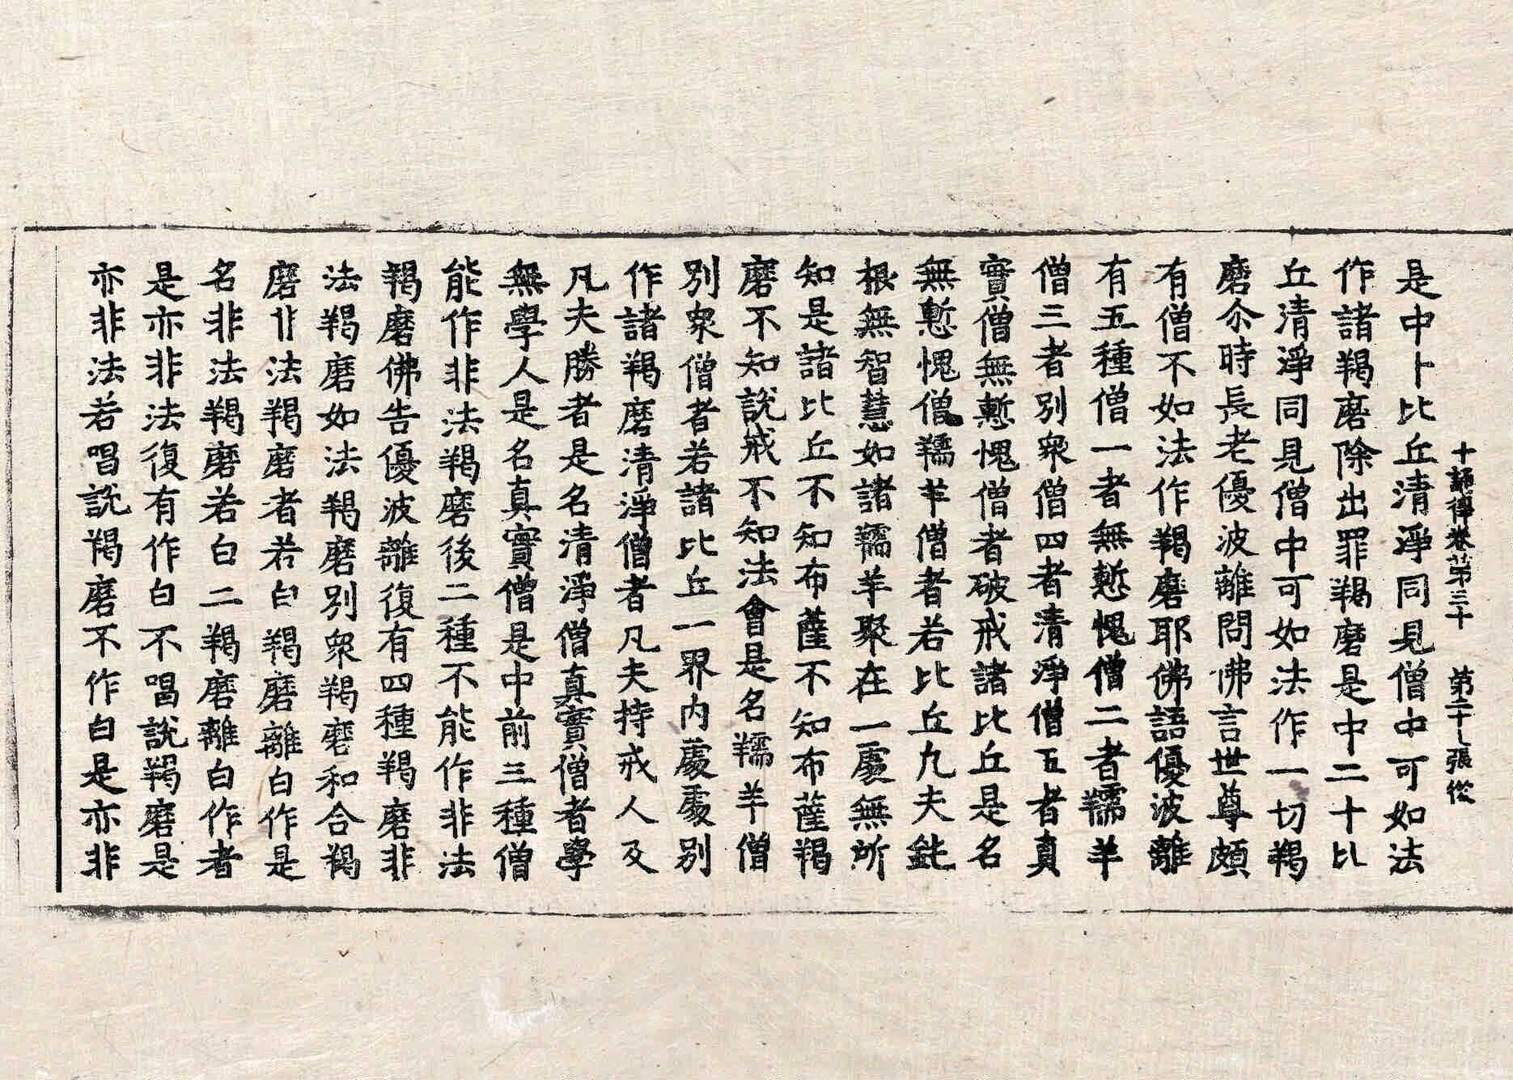 十誦律卷第三十 第二十七張 俊
是中十比丘清淨同見僧中可如法
作諸羯磨除出罪羯磨是中二十比
丘清淨同見僧中可如法作一切羯
磨尒時長老優波離問佛言世尊頗
有僧不如法作羯磨耶佛語優波離
有五種僧一者無慙愧僧二者羺羊
僧三者別衆僧四者清淨僧五者真
實僧無慙愧僧者破戒諸比丘是名
無慙愧僧羺羊僧者若比丘凡夫鈍
根無智慧如諸羺羊聚在一處無所
知是諸比丘不知布薩不知布薩羯
磨不知說戒不知法會是名羺羊僧
別衆僧者若諸比丘一界內處處別
作諸羯磨清淨僧者凡夫持戒人及
凡夫勝者是名清淨僧真實僧者學
無學人是名真實僧是中前三種僧
能作非法羯磨後二種不能作非法
羯磨佛告優波離復有四種羯磨非
法羯磨如法羯磨別衆羯磨和合羯
磨非法羯磨者若白羯磨離白作是
名非法羯磨若白二羯磨離白作者
是亦非法復有作白不唱說羯磨是
亦非法若唱說羯磨不作白是亦非